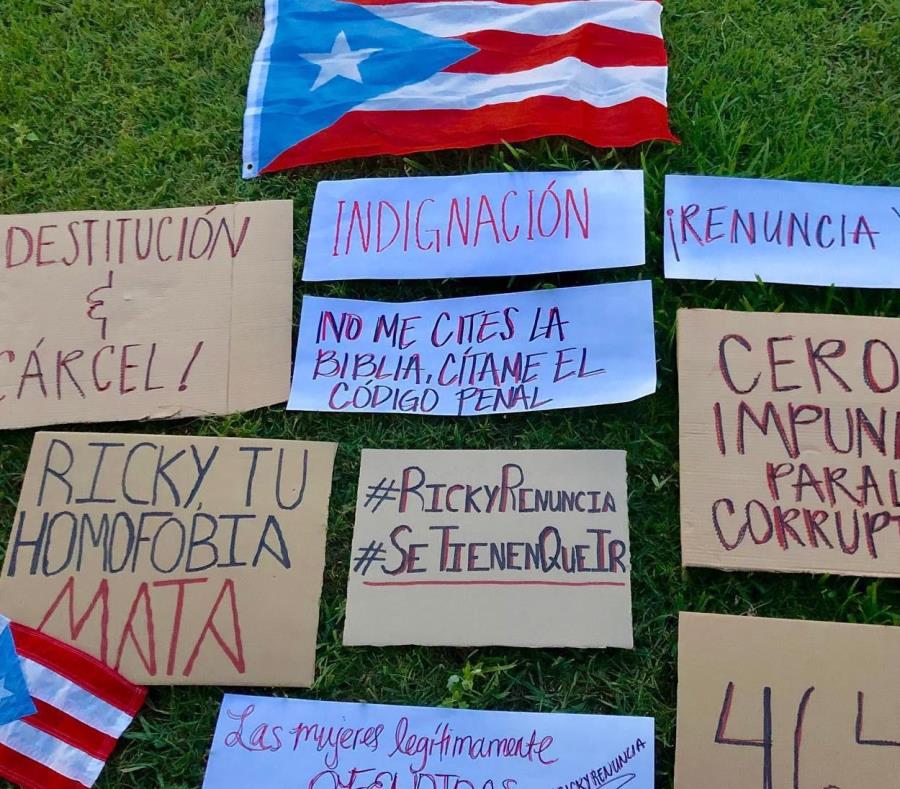 DESTITUCIÓN
&
CÁRCEL!
INDIGNACIÓN
¡RENUNCIA
NO ME CITES LA
BIBLIA, CÍTAME EL
CÓDIGO PENAL
CERO
IMPUNI
PARA L
CORRUPT
RICKY, TU
HOMOFOBIA
MATA
#RICKYRENUNCIA
#SETIENENQUEIR
Las mujeres legítimamente
OFENDIDAS
RICKYRENUNCIA